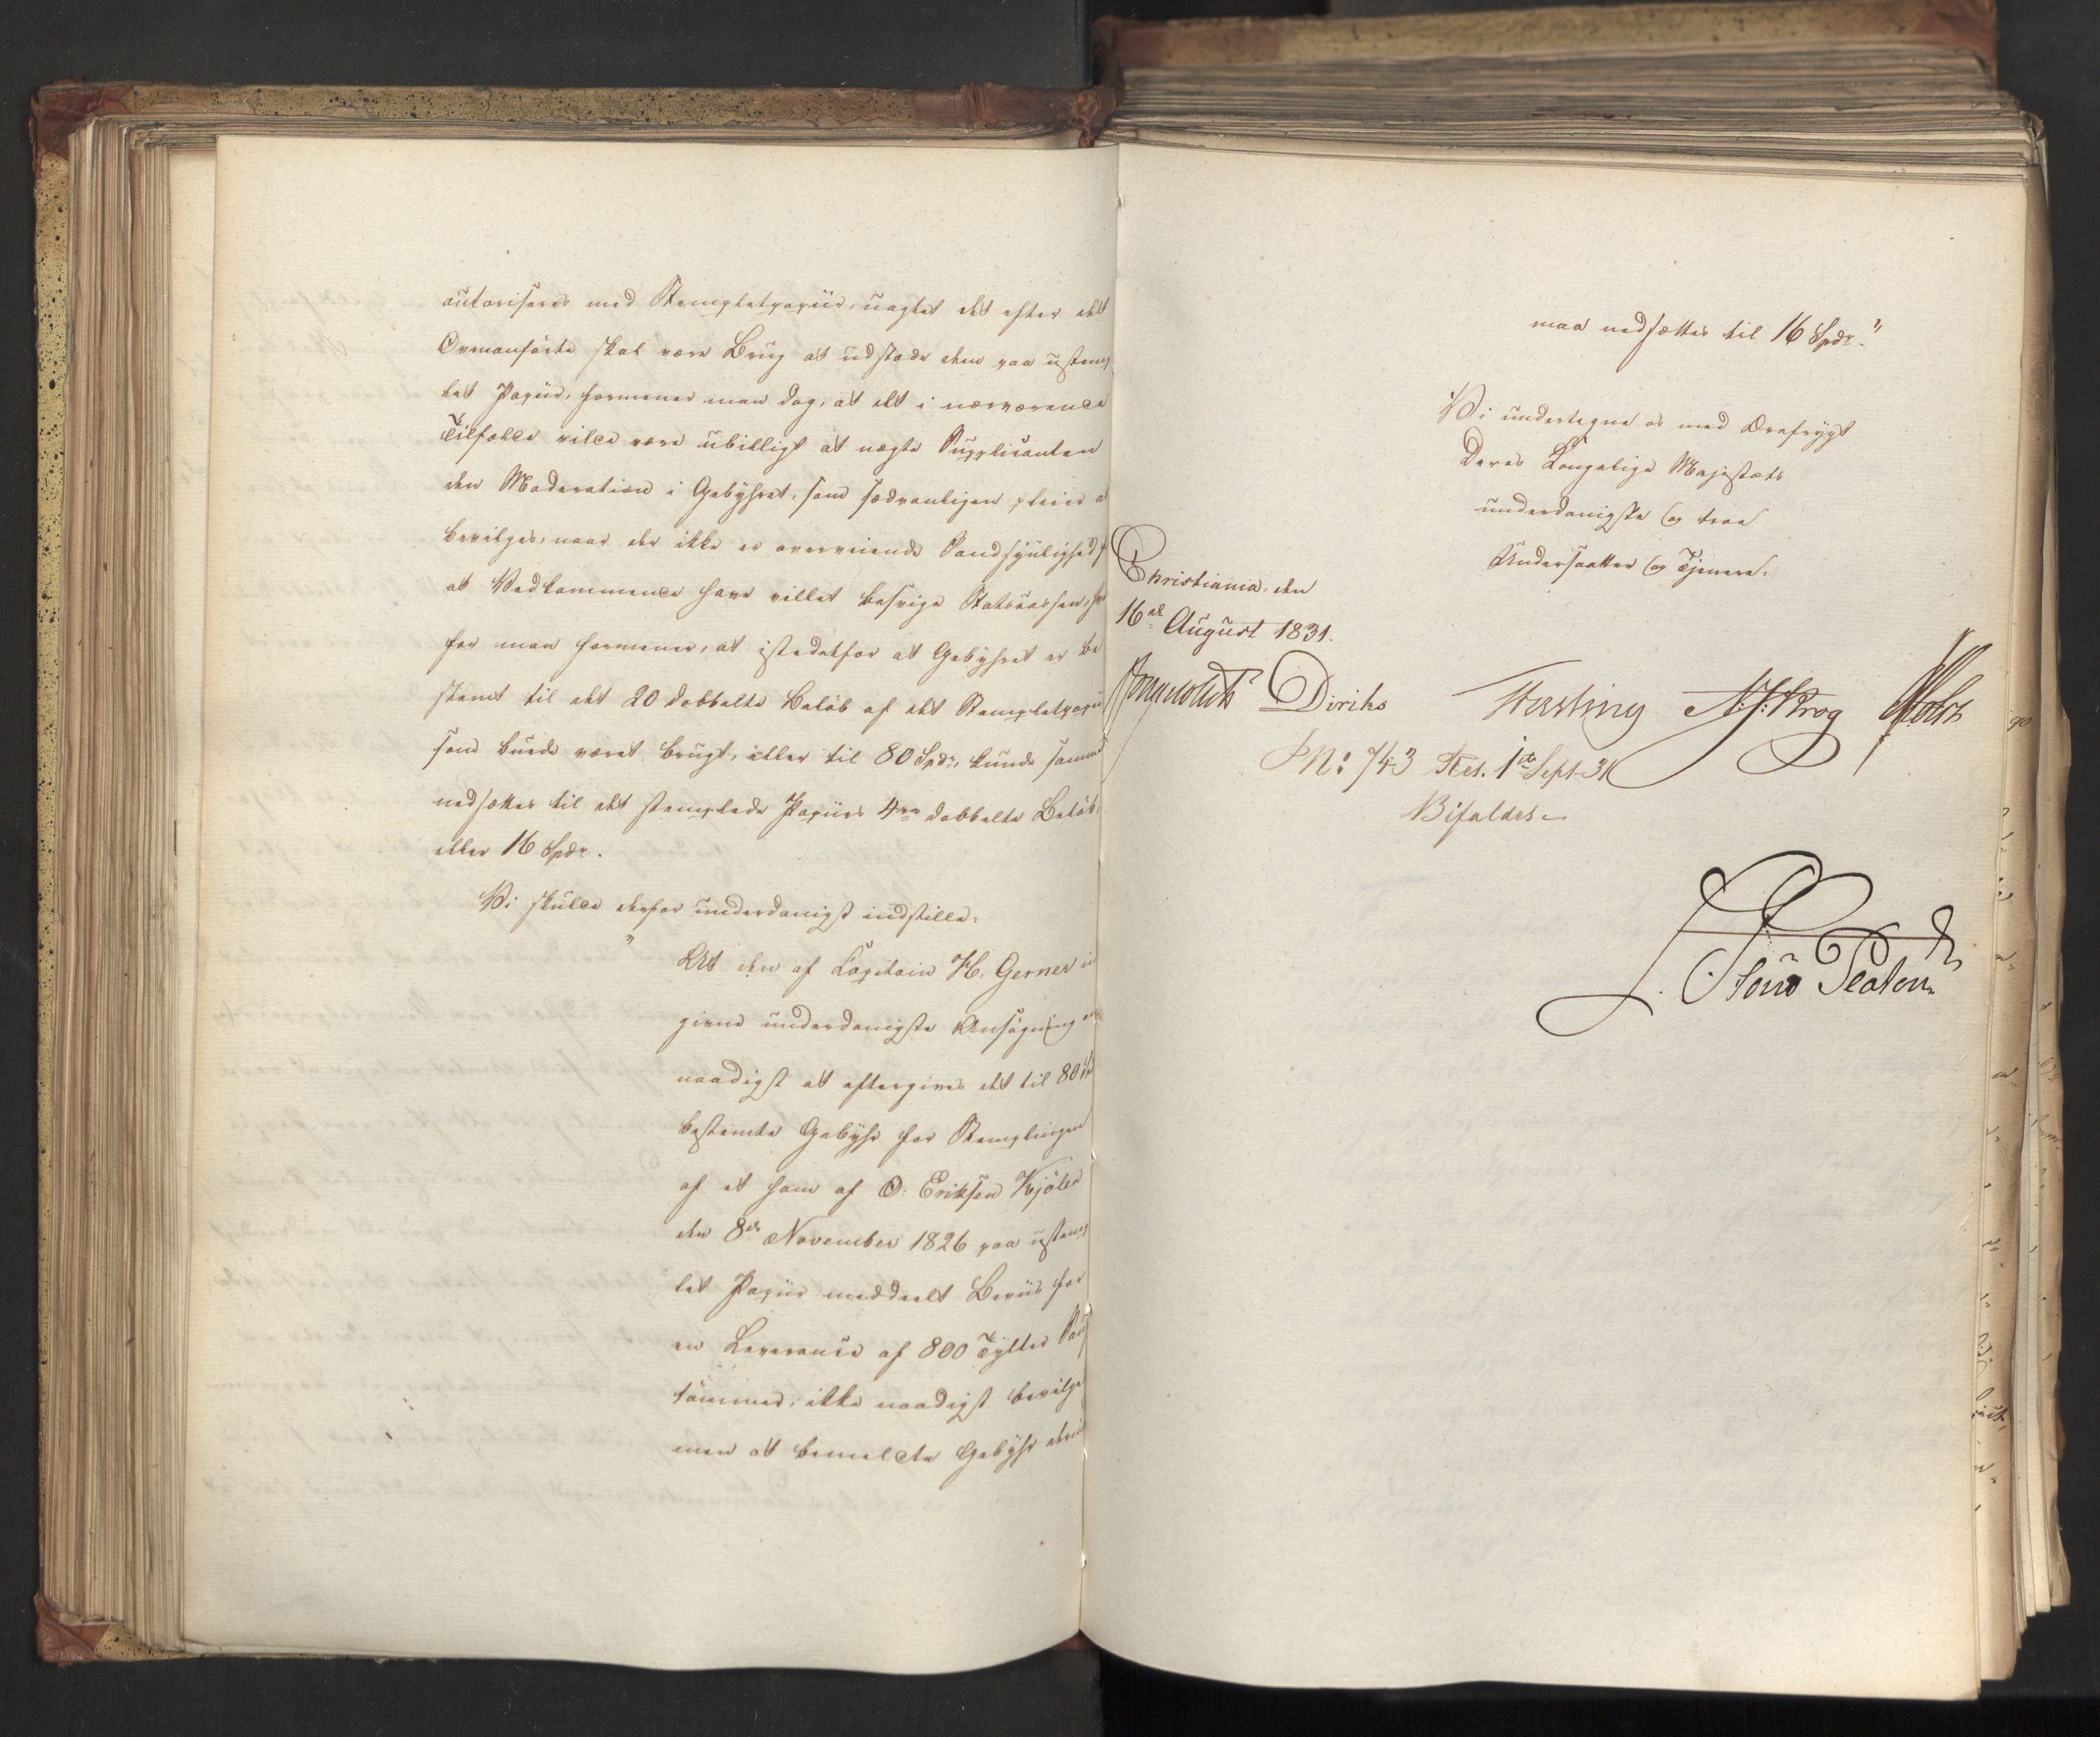 autoriseres med Stempletpapiir, uagtet det efter det
Ovenanførte skal være Brug at udstæde dem paa ustemp
let Papiir, formener man dog, at det i nærværende
Tilfælde vilde være ubilligt at nægte Supplicanten
den Moderation i Gebyhret, som sædvanligen pleier a
bevilges, naar der ikke er overveiende Sandsynlighed f
at Vedkommende have villet besvige Statscassen, hvor
for man formener, at istedetfor at Gebyhret er be
stemt til det 20 dobbelte Beløb af det Stempletpapiir
som burde været brugt, eller til 80 Spdr, kunde samme
nedsættes til det stemplede Papiirs 4re dobbelte Beløb,
eller 16 Spdr.
Vi skulde derfor underdanigst indstille:
" At den af Capitain H. Gerner in
givne underdanigste Ansøgning om
naadigst at eftergives det til 80 Spd
bestemte Gebyhr for Stemplingen
af et ham af O. Eriksen Kjølen
den 8de November 1826 paa ustemp
let Papiir meddeelt Beviis for
en Leverance af 800 Tylter Sau
tømmer, ikke naadigst bevilges
men at bemeldte Gebyhr derimod
maa nedsættes til 16 Spdr."
Vi undertegne os med Ærefrygt
Deres Kongelige Majestæts
underdanigste og troe
Undersaatter og Tjenere.
Christiania, den
16de August 1831.
Diriks Fasting N. J. Krog Holst
PN: 743 Res. 1ste Sept. 31
Bifaldes.